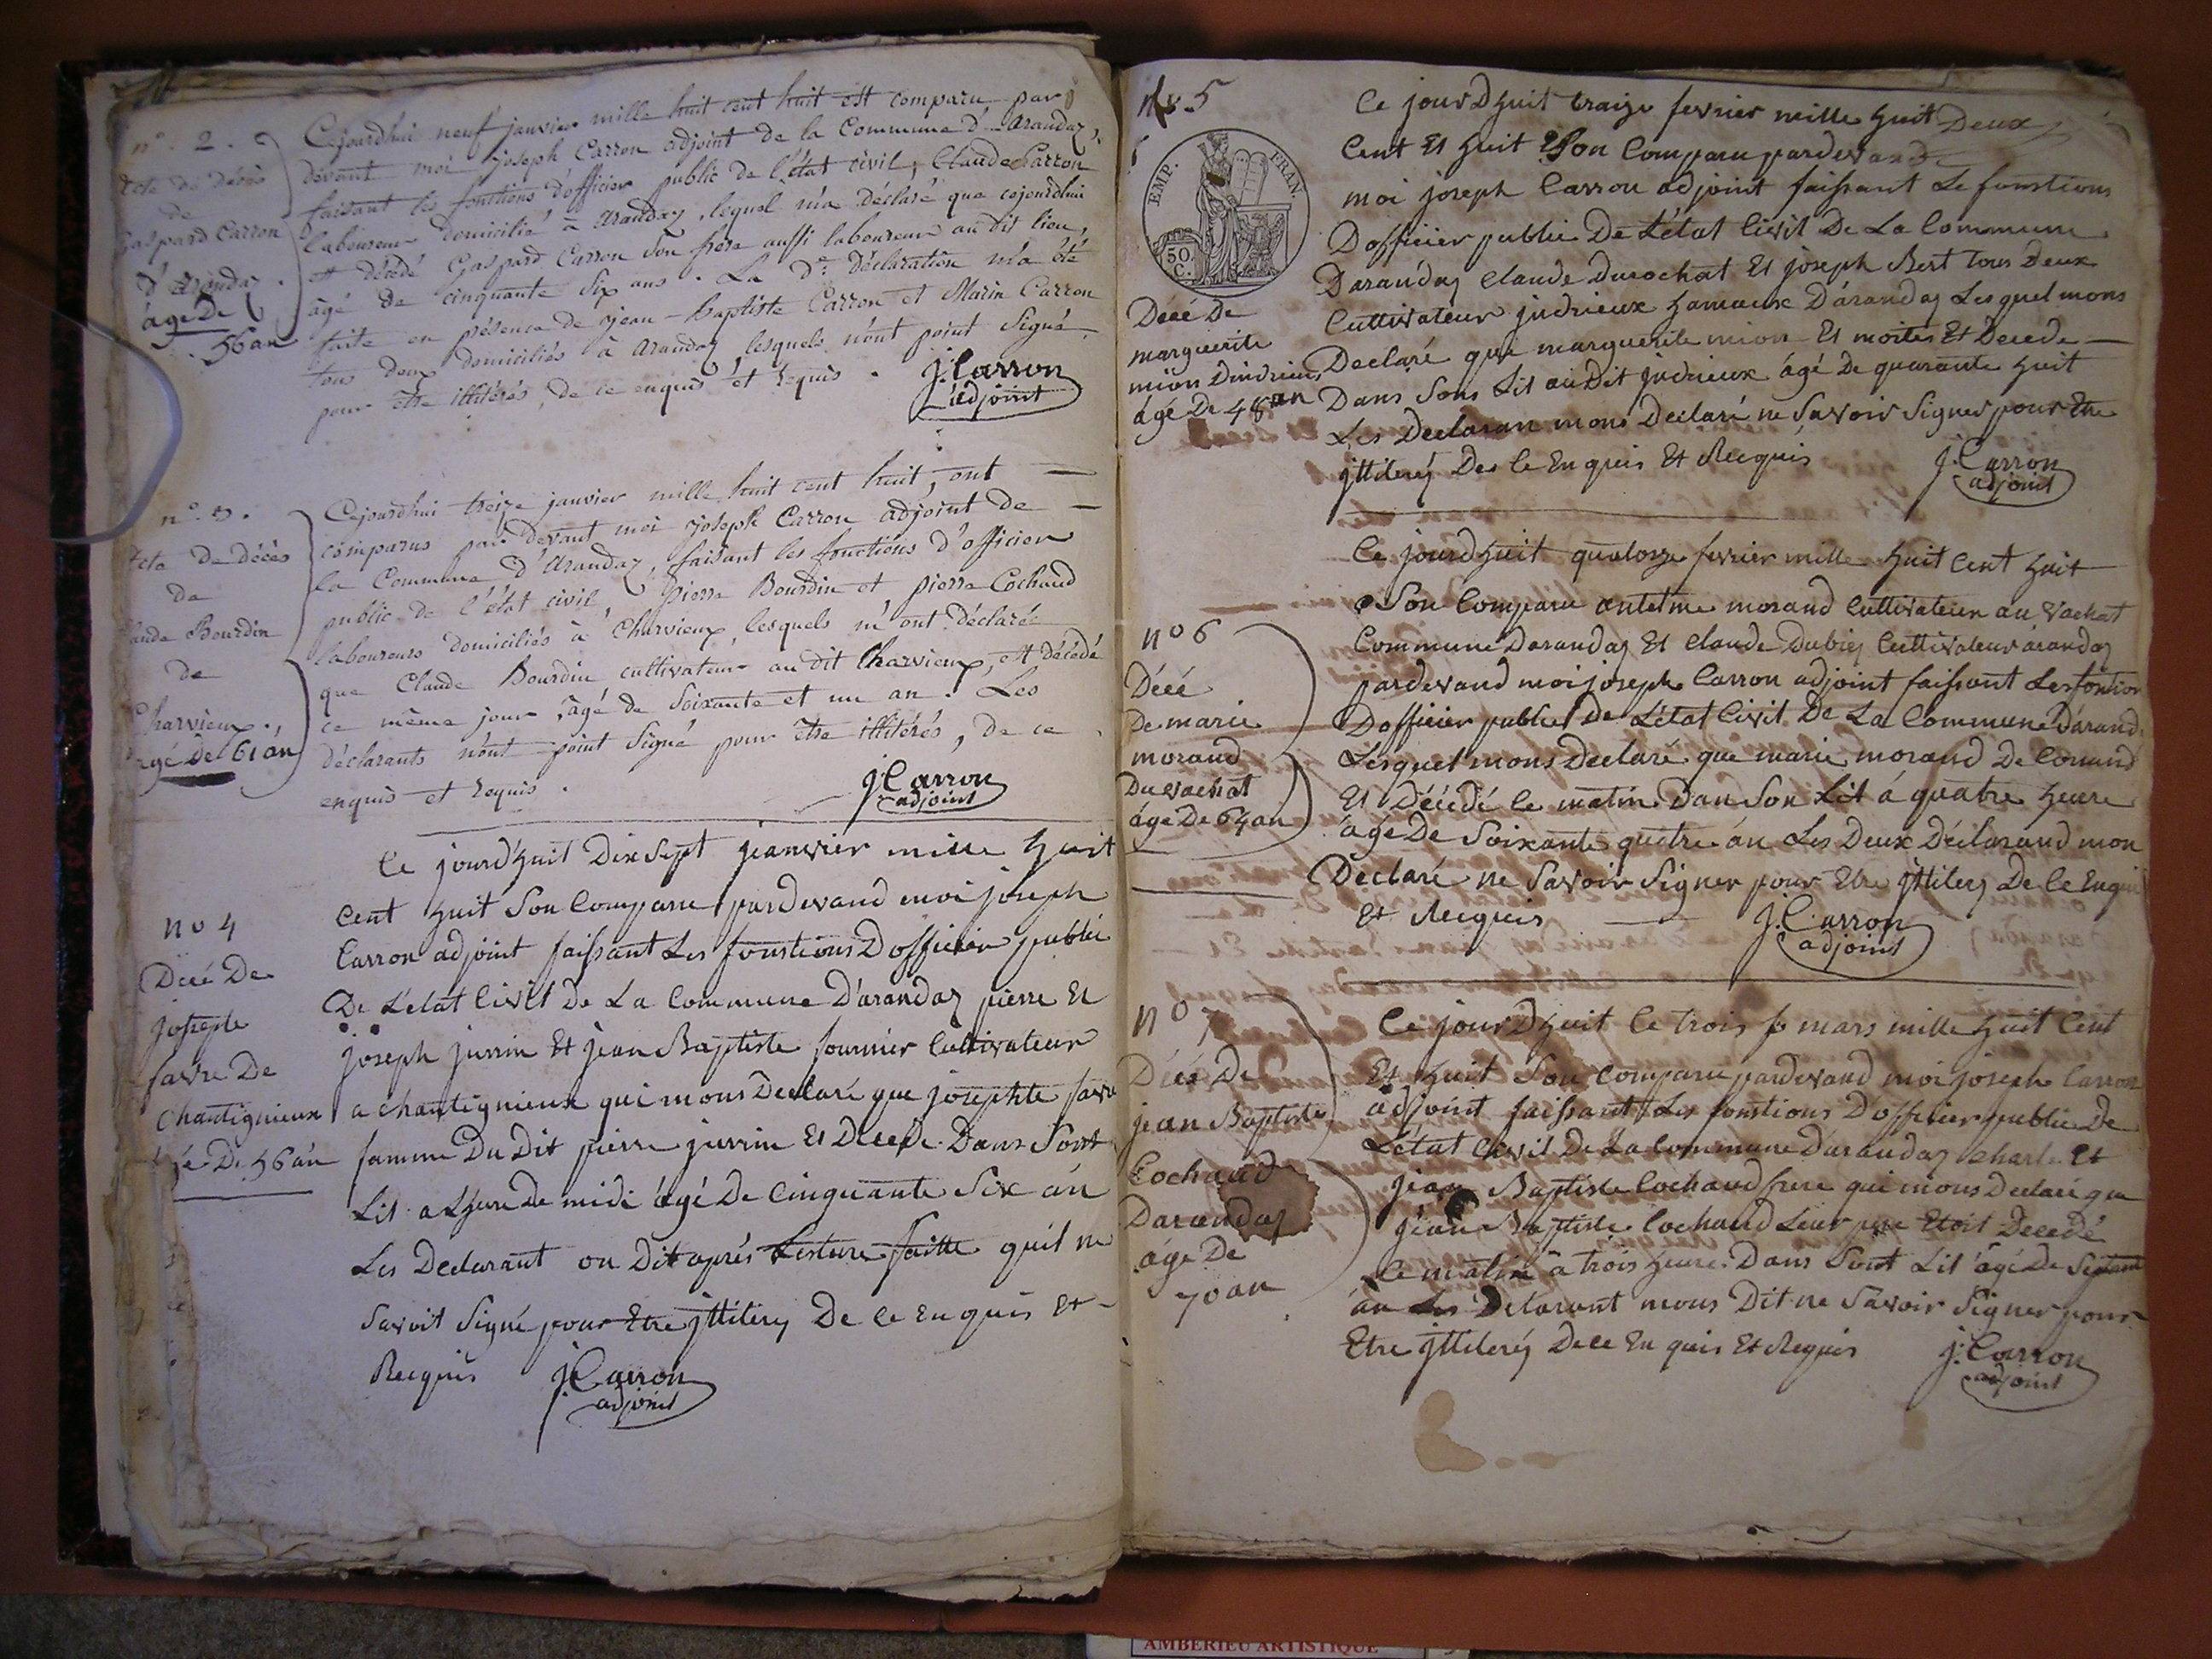 n° 2.
acte de décès
de
Gaspard Carron
d'Arandaz.
âgé De
56 an
Cejourdhui neuf janvier mille huit cent huit est comparu par
devant moi joseph Carron adjoint de la Commune d'Arandaz,
faisant les fonctions d'officier public de l'état civil, Claude Carron
laboureur domicilié à Arandaz, lequel m'a déclaré que cejourdhui
est décédé Gaspard Carron son frère aussi laboureur au dit lieu,
âgé de cinquante six ans. La de. déclaration m'a été
faite en présence de jean-baptiste Carron et Marin Carron
tous deux domiciliés à Arandaz, lesquels n'ont point signé
pour être illitérés, de ce enquis et requis.
J. Carron
adjoint
n° 3.
acte de décès
de
Claude Bourdin
de
Charvieux.
âgé De 61 an
Cejourdhui treize janvier mille huit cent huit, ont
comparus par devant moi joseph Carron adjoint de
la Commune d'Arandaz, faisant les fonctions d'officier
public de l'état civil, pierre Bourdin et pierre Cochaud
laboureurs domiciliés à Charvieux, lesquels m'ont déclaré
que Claude Bourdin cultivateur au dit Charvieux, est décédé
ce même jour, âgé de soixante et un an. Les
déclarants n'ont point signé pour être illitérés, de ce
enquis et requis.
J. Carron
adjoint
no 4
Décé De
Josephte
favre De
Chantignieux
âgé De 56 an
Ce jourd'huit Dix sept jeanvier mille huit
cent huit Son Comparu pardevand moi joseph
Carron adjoint faissant Les fonstions D officier public
De L'état Civil De La Commune D'arandaz pierre Et
joseph jurrin Et jean Baptiste fournier Cultivateur
a chantignieux qui mons Declaré que josephte favre
famme Du Dit pierre jurrin Et Decede Dans Sont
Lit a Lheure De midi âgé De Cinquante Six an
Les Declarant on Dit aprés Lesture faitte quil ne
Savoit Signé pour Etre jttilery De Ce Enquis Et
Recquis
J. Carron
adjoint
no 5
EMP. FRAN.
50. C.
Décé De
marguerite
mion Dindrieux
âgé De 48 an
Ce jour D huit traize fevrier mille huit Deux
Cent Et huit Son Comparu pardevand
moi joseph Carron adjoint faissant Le fonstions
D officier public De L'état Civil De La Commune
Darandaz Claude Durochat Et joseph Bert Tous Deux
Cultivateur jndrieux hamaux D'arandaz Lesquel mons
Declaré que marguerite mion Et mortes Et Decede
Dans Sons Lit au Dit jndrieux âgé De quarante huit
Les Declaran mons Declaré ne Savoir Signer pour Etre
jttilery Des Ce Enquis Et Recquis
J. Carron
adjoint
no 6
Décé
De marie
morand
Du vachat
âgé De 64 an
Ce jourdhuit quatorze fevrier mille huit Cent huit
Son Comparu antelme morand Cultivateur au vachat
Commune Darandaz Et Claude Dubiez Cultivateur arandaz
pardevand moi joseph Carron adjoint faissant Les fontion
D officier public De L'état Civil De La Commune D'arand
Lesquel mons Declaré que marie morand De Conand
Et Décédé Ce matin Dan Son Lit á quatre heure
âgé De Soixante quatre an Les Deux Déclarand mon
Declaré ne Savoir Signer pour Etre jttilery De Ce Enquis
Et Recquis
J. Carron
adjoint
no 7
Décés De
jean Baptiste
Cochaud
Darandaz
âgé De
70 an
Ce jour D huit Ce trois fe mars mille huit Cent
Et huit Son Comparu pardevand moi joseph Carron
adjoint faissant Les fonstions D'officier public De
L'état Civil De La Commune Darandaz charle Et
jean Baptiste Cochaud frere qui mons Declaré que
jean Baptiste Cochaud Leur pere Etoit Decedé
Le matin à trois heure Dans Sont Lit âgé De Septante
an Les Delarant mous Dit ne Savoir Signer pour
Etre jttilery De Ce En quis Et Requis
J. Carron
adjoint
AMBERIEU ARTISTIQUE